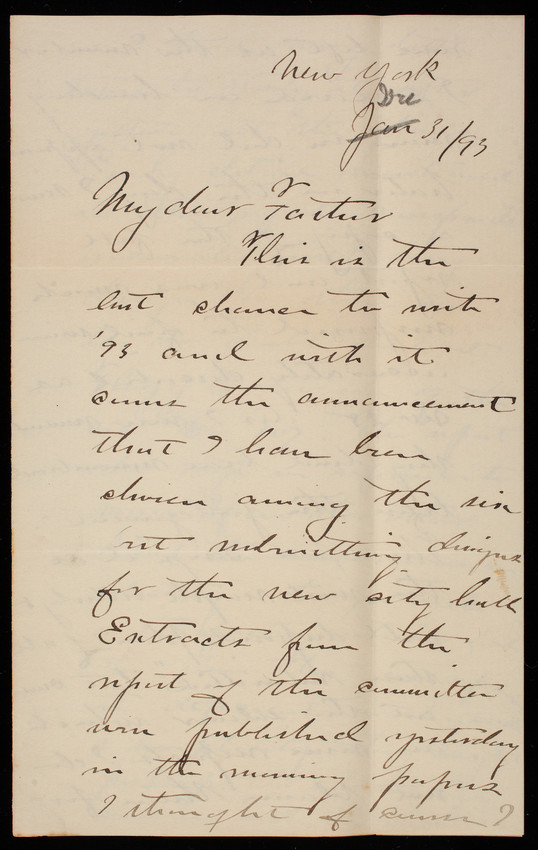 New York
Dec
Jan 31/93
My dear Father
This is the
last chance to write
'93 and with it
comes the announcement
that I have been
chosen among the six
submitting designs
for the new city hall
Extracts from the
report of the committee
were published yesterday
in the morning papers
I thought of course I